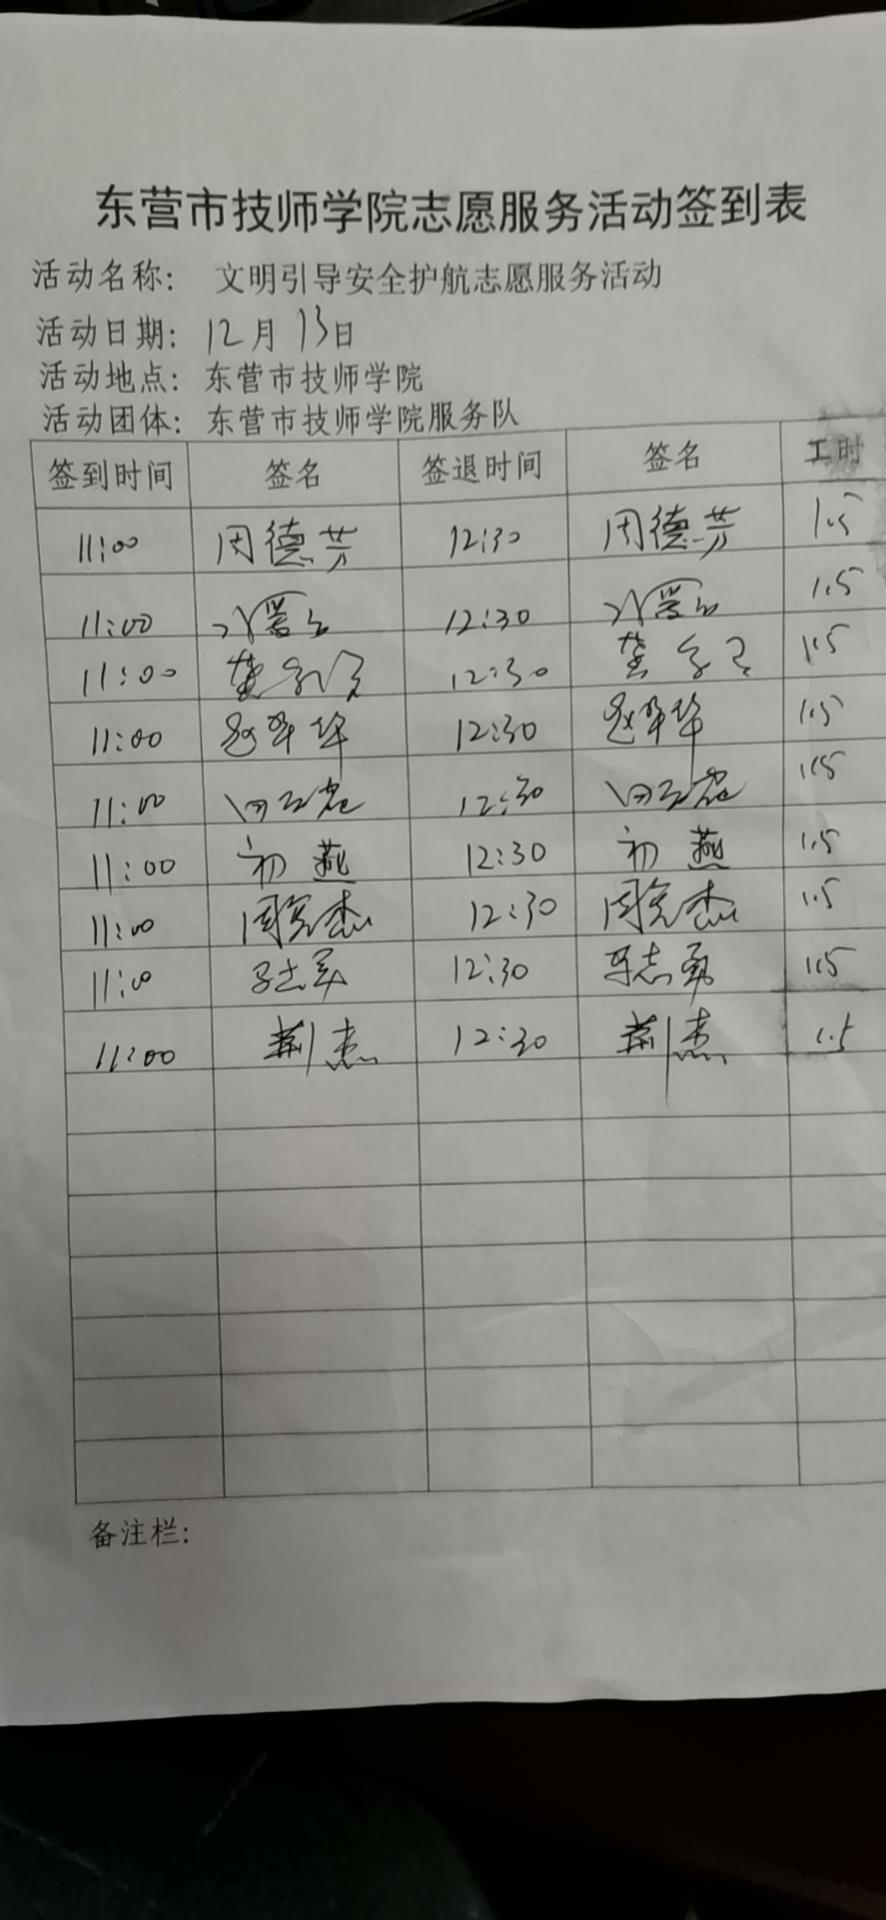 东营市技师学院志愿服务活动签到表
活动名称： 文明引导安全护航志愿服务活动
活动日期：12月13日
活动地点：东营市技师学院
活动团体：东营市技师学院服务队
签到时间 签名 签退时间 签名 工时
11:00 周德芳 12:30 周德芳 1.5
11:00 12:30 1.5
11:00 12:30 1.5
11:00 赵翠华 12:30 赵翠华 1.5
11:00 12:30 1.5
11:00 初燕 12:30 初燕 1.5
11:00 周宪杰 12:30 周宪杰 1.5
11:00 12:30 1.5
11:00 荆杰 12:30 荆杰 1.5
备注栏：